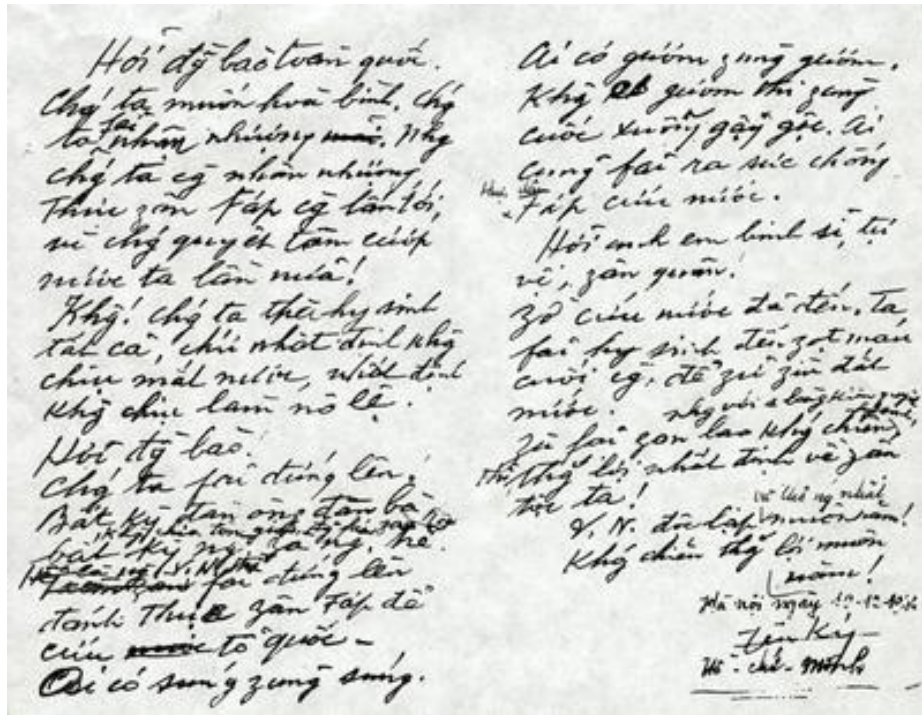 Hỡi đ̃g bào toàn quốc.
Chǵ ta muốn hoà bình, chǵ
ta fải nhân nhượng. Nhg
chǵ ta cg̀ nhân nhượng,
thực zân Fáp cg̀ lấn tới,
vì chǵ quyết tâm cướp
nước ta lần nữa!
Khg̃! chǵ ta thà hy sinh
tất cả, chứ nhất định khg̃
chịu mất nước, nhất định
khg̃ chịu làm nô lệ.
Hỡi đg̀ bào!
Chǵ ta fải đứng lên!
Bất kỳ đàn ông đàn bà
bất kỳ ng. già ng. trẻ.
fải đứng lên
đánh thực zân Fáp để
cứu tổ quốc –
Ai có súng zùng súng.
Ai có gươm zùng gươm.
Khg̃ có gươm thì zùng
cuốc xuổng gậy gộc. Ai
cũng fải ra sức chống
Fáp cứu nước.
Hỡi anh em binh sĩ, tự
vệ, zân quân!
Zờ cứu nước đã đến. Ta
fải hy sinh đến zọt máu
cuối cg̀, để zữ zìn đất
nước.
Zù fải zan lao khǵ chiến,
thì thǵ lợi nhất định về zân
tộc ta!
V. N. độc lập và thống nhất muôn năm!
Khǵ chiến thǵ lợi muôn
năm!
Hà nội ngày
Hồ-chí-Minh